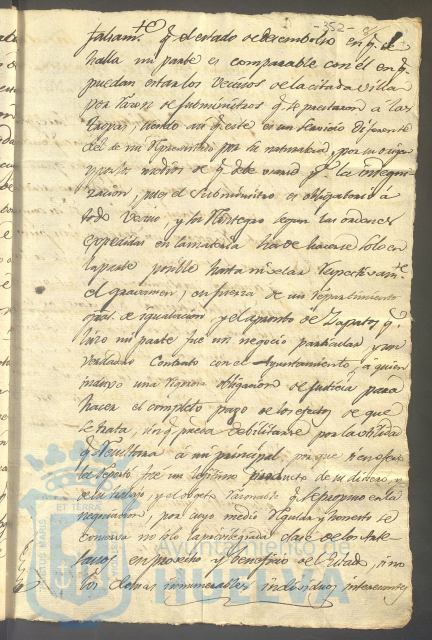 -352-
falsam.te q.e el estado de desembolso en q.e se
halla mi parte es comparable con el en q.e
puedan estar los vecinos de la citada villa
por razon de subministros q.e prestaron a las
tropas, siendo asi q.e este es un servicio diferente
del de mi representado por su naturaleza, por su origen
y por los medios de q.e debe usarse p.a la reintegra
cion, pues el subministro es obligatorio á
todo vecino, y su reintegro segun las ordenes
expedidas en la materia ha de hacerse solo en
la parte posible hasta nivelar respectivam.te
el gravamen, en fuerza de un repartimiento
gral. de igualacion, y el apronto de zapatos q.e
hizo mi parte fue un negocio particular, y un
verdadero contrato con el Ayuntamiento, á quien
incumbe una rigorosa obligacion de justicia para
hacer el completo pago de los efectos de que
se trata, sin q.e pueda debilitarse por la utilidad
q.e resultara a mi principal, por que
fue un legitimo producto de su dinero, y
de su trabajo, y el objeto razonable q.e se propuso en la
negociacion, por cuyo medio regular y honesto se
conserva no solo la privilegiada clase de los
en provecho y beneficio del Estado, sino
los demas innumerables individuos interesantes
ET TERRAE
Ayuntamiento de
HUELVA